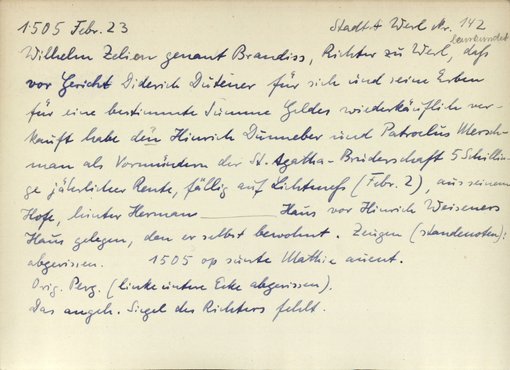 1505 Febr. 23 StadtA Werl Nr. 142
Wilhelm Zelien genant Brandiss, Richter zu Werl, beurkundet daß
vor Gericht Diderich Dutener für sich und seine Erben
für eine bestimmte Summe Geldes wiederkäuflich ver-
kauft habe den Hinrich Dunneber und Patroclus Mersch-
man als Vormündern der St. Agatha-Bruderschaft 5 Schillin-
ge jährlicher Rente, fällig auf Lichtmeß (Febr. 2), aus seinem
Hofe, hinter Herman ______ Haus vor Hinrich Weiseners
Haus gelegen, den er selbst bewohnt. Zeugen (standenoten):
abgerissen. 1505 op sunte Mathie avent.
Orig. Perg. (linke untere Ecke abgerissen).
Das angeh. Siegel des Richters fehlt.